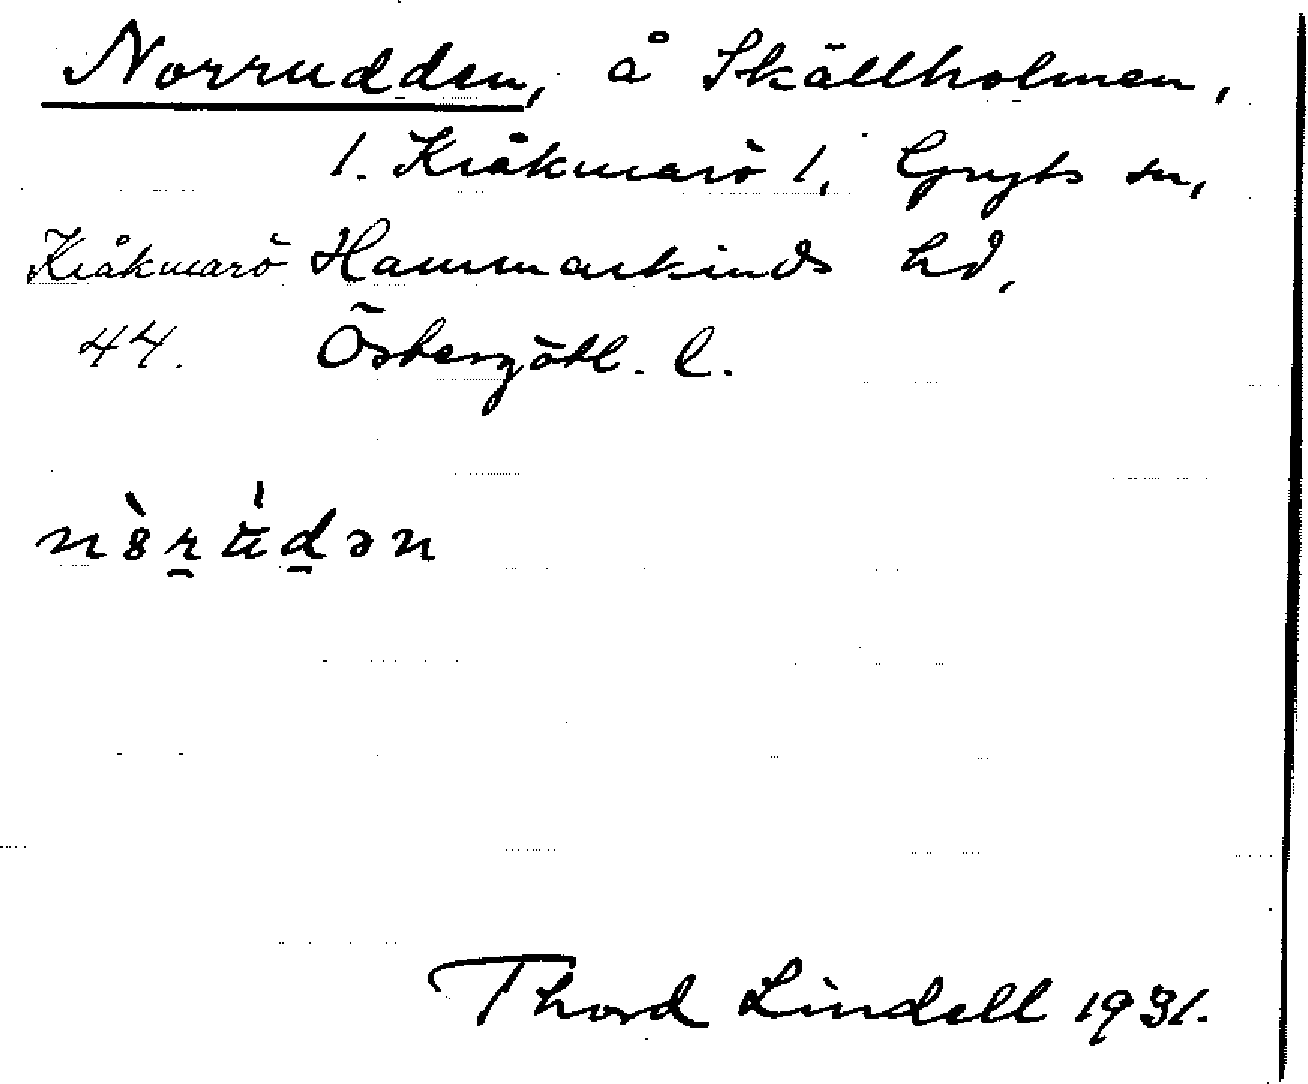 Norrudden, å Skällholmen,
1. Kråkmarö 1, Gryts sn,
Kråkmarö Hammarkinds hd,
44. Östergötl. l.
Thord Lindell 1931.